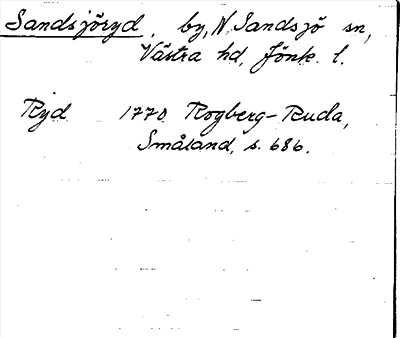 Sandsjöryd, by, N. Sandsjö sn,
Västra hd, Jönk. l.
Ryd 1770 Rogberg-Ruda,
Småland, s. 686.